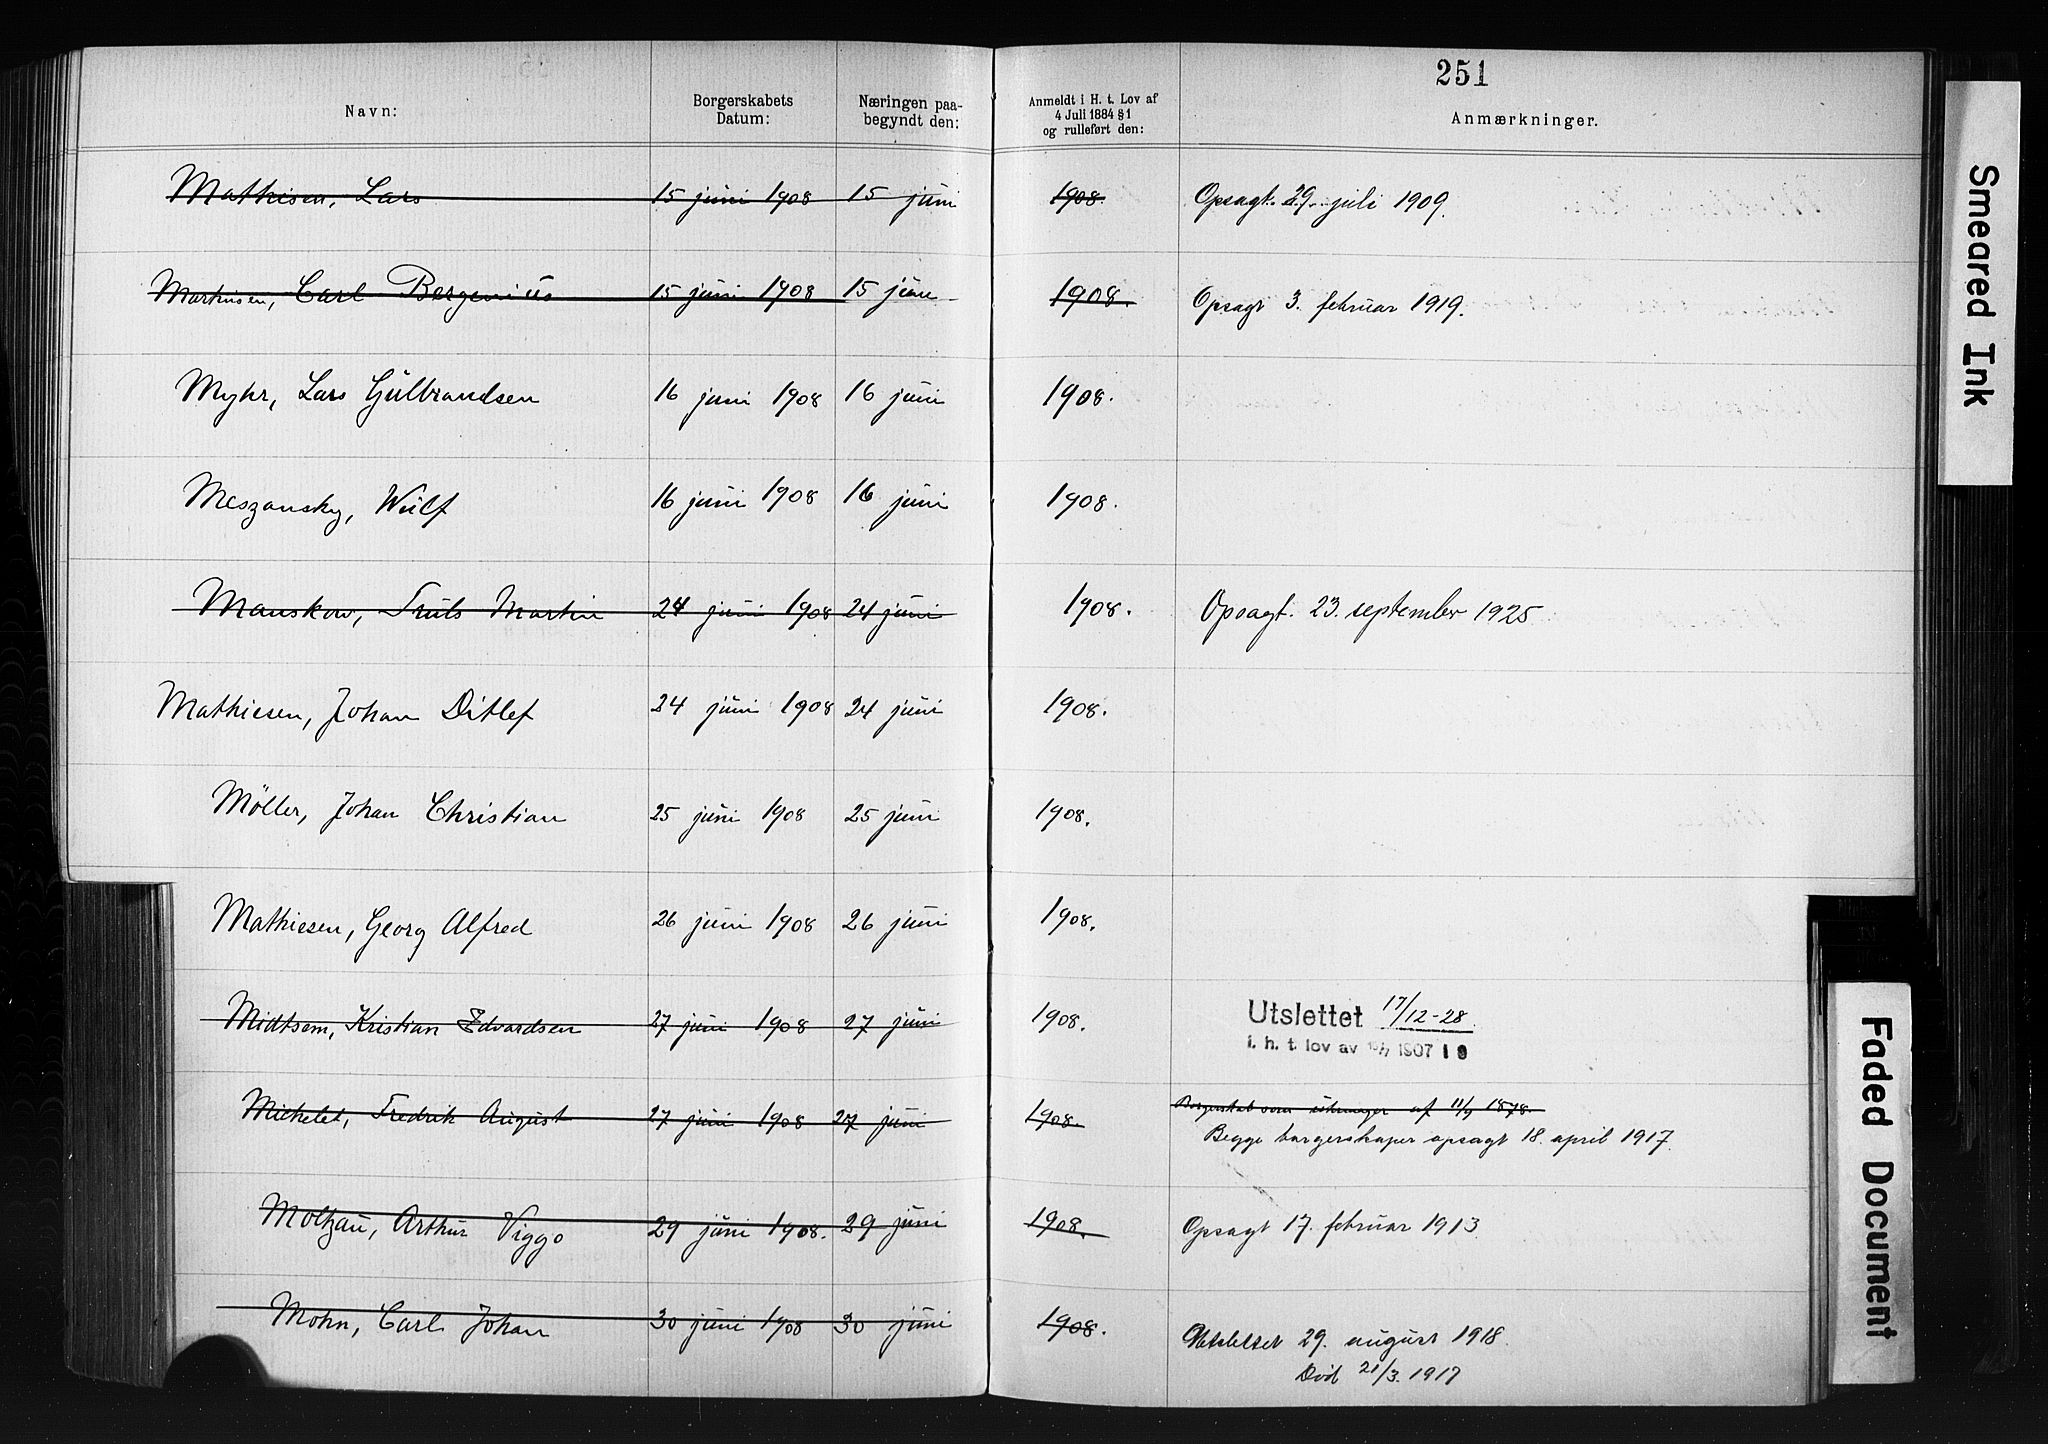 251
Navn: Borgerskabets Datum: Næringen paa-begyndt den: Anmeldt i H. t. Lov af 4 Juli 1884 § 1 og rulleført den: Anmærkninger.
Mathisen, Lars 15 juni 1908 15 juni 1908. Opsagt 29. juli 1909.
Martinsen, Carl Bergenius 15 juni 1908 15 juni 1908. Opsagt 3. februar 1919.
Myhr, Lars Gulbrandsen 16 juni 1908 16 juni 1908.
Meszansky, Wulf 16 juni 1908 16 juni 1908.
Manskow, Truls Martin 24 juni 1908 24 juni 1908. Opsagt. 23. september 1925
Mathiesen, Johan Ditlef 24 juni 1908 24 juni 1908.
Möller, Johan Christian 25 juni 1908 25 juni 1908.
Mathiesen, Georg Alfred 26 juni 1908 26 juni 1908.
Midtsem, Kristian Edvardsen 27 juni 1908 27 juni 1908. Utslettet 17/12-28.
i. h. t. lov av 1907
Michelet, Fredrik August 27 juni 1908 27 juni 1908. Borgerskab som af 11/9 1878.
Begge borgerskaper opsagt 18. april 1917.
Moltzau, Arthur Viggo 29 juni 1908. 29 juni 1908. Opsagt 17. februar 1913
Mohn, Carl Johan 30 juni 1908 30 juni 1908. Utslettet 29. august 1918.
Död 21/3. 1917
Smeared Ink
Faded Document